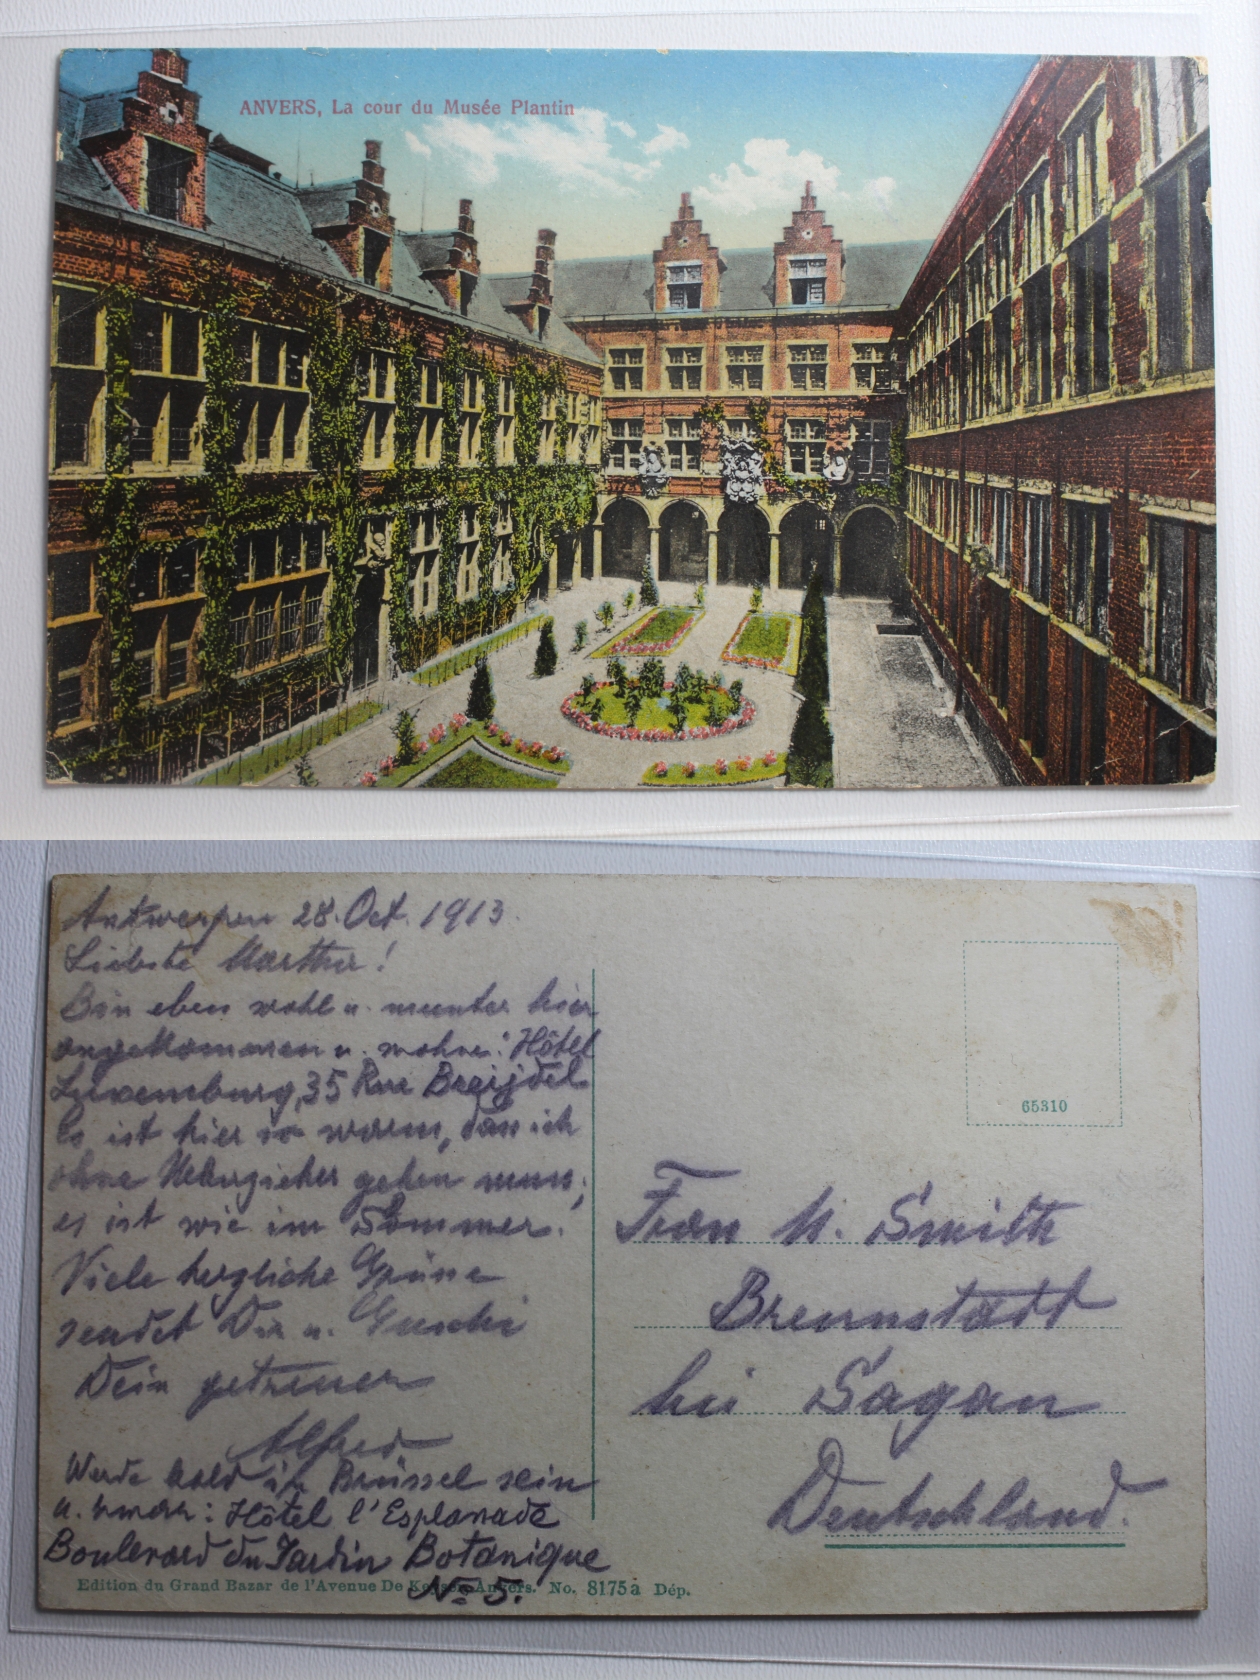 ANVERS, La cour du Musée Plantin
Antwerpen 28. Oct. 1913.
Liebste Martha!
Bin eben wohl u. munter hier
angekommen u. wohne: Hôtel
Luxemburg, 35 Rue Breijdel
Es ist hier so warm, dass ich
ohne Ueberzieher gehen muss;
es ist wie im Sommer.
Viele herzliche Grüsse
sendet Dir u. Guschi
Dein getreuer
Alfred
Werde bald in Brüssel sein
u. zwar: Hôtel l'Esplanade
Boulevard du Jardin Botanique
No 5.
Edition du Grand Bazar de l'Avenue De Keyser Anvers. No. 8175a Dép.
65310
Frau M. Smilk
Breunstadt
bei Sagan
Deutschland.